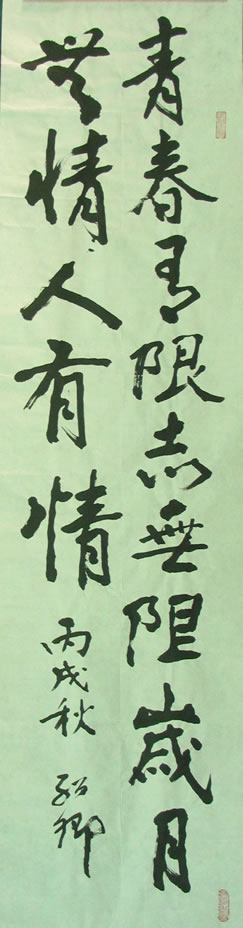 青春有限志無阻歲月
無情人有情
丙戌秋